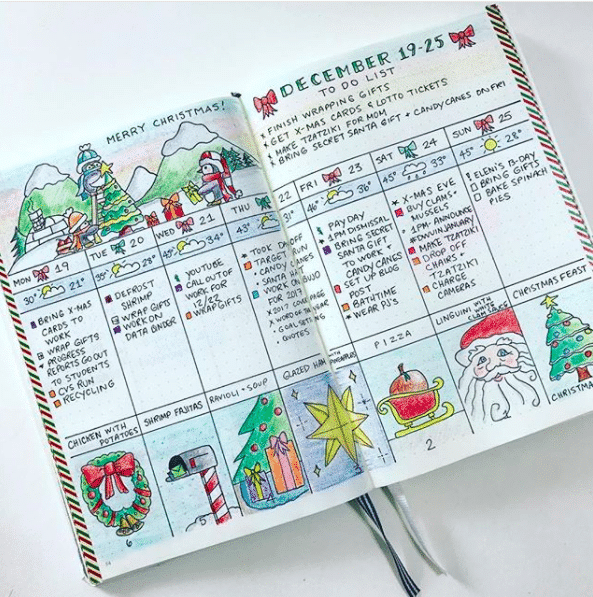 MERRY CHRISTMAS!
MON 19
30° 21°
BRING X-MAS
CARDS TO
WORK
WRAP GIFTS
PROGRESS
REPORTS GO OUT
TO STUDENTS
CVS RUN
RECYCLING
CHICKEN WITH
POTATOES
6
TUE 20
39° 28°
DEFROST
SHRIMP
WRAP GIFTS
WORK ON
DATA BINDER
SHRIMP FAJITAS
5
WED 21
45° 34°
YOUTUBE
CALL OUT OF
WORK FOR
12/22
WRAP GIFTS
RAVIOLI + SOUP
THU 22
43° 31°
TOOK DAY OFF
TARGET RUN
CANDY CANES
SANTA HAT
WORK ON BUJO
FOR 2017
X 2017 COVER PAGE
X WORD OF THE YEAR
GOAL SETTING
QUOTES
GLAZED HAM
WITH
PINEAPPLES
DECEMBER 19-25
TO DO LIST
FINISH WRAPPING GIFTS
GET X-MAS CARDS & LOTTO TICKETS
MAKE TZATZIKI FOR MOM
BRING SECRET SANTA GIFT + CANDY CANES ON FRI
FRI 23
46° 36°
PAY DAY
1 PM DISMISSAL
BRING SECRET
SANTA GIFT
TO WORK +
CANDY CANES
SET UP BLOG
POST
BATHTIME
WEAR PJ'S
PIZZA
2
SAT 24
45° 33°
X-MAS EVE
BUY CLAMS +
MUSSELS
1PM-ANNOUNCE
#DWVUINJANUARY
MAKE TZATZIKI
DROP OFF
CHAIRS +
TZATZIKI
CHARGE
CAMERAS
LINGUINI WITH
CLAM SAUCE
SUN 25
45° 28°
ELENI'S B-DAY
BRING GIFTS
BAKE SPINACH
PIES
CHRISTMAS FEAST
CHRISTMAS